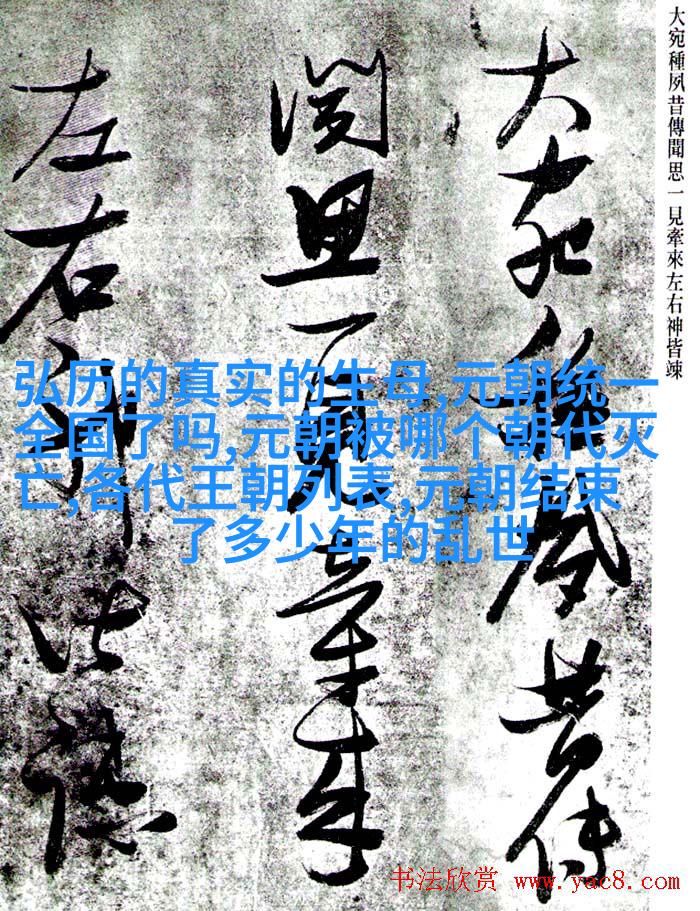 大宛種夙昔傳聞思一見牽來左右神皆竦
大宛種夙昔傳
聞思一見牽來
左右神皆竦
弘历的真实的生母,元朝统一
全国了吗,元朝被哪个朝代灭
亡,各代王朝列表,元朝结束
了多少年的乱世
书法欣赏 www.yac8.com